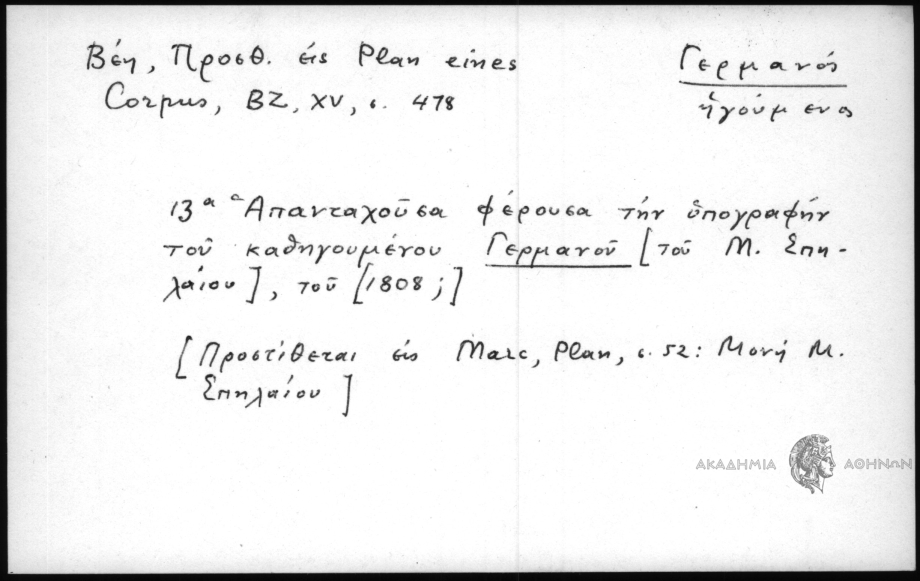 Βέη, Προσθ. εἰς Plan eines
Corpus, BZ, XV, σ. 478
Γερμανός
ἡγούμενος
13ᾳ Ἁπανταχοῦσα φέρουσα τὴν ὑπογραφὴν
τοῦ καθηγουμένου Γερμανοῦ [τοῦ Μ. Σπη-
λαίου], τοῦ [1808;]
[Προστίθεται εἰς Marc, Plan, σ. 52: Μονὴ Μ.
Σπηλαίου]
ΑΚΑΔΗΜΙΑ ΑΘΗΝΩΝ